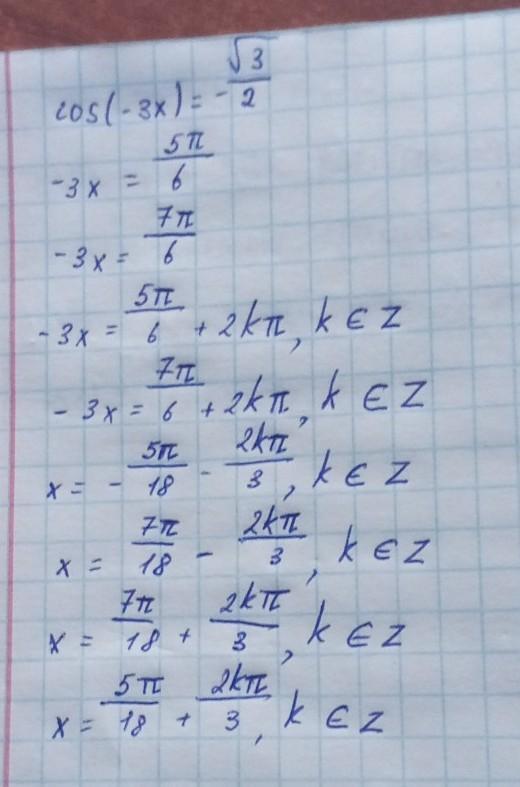 cos(-3x) = -√3/2
-3x = 5π/6
-3x = 7π/6
-3x = 5π/6 + 2kπ, k ∈ Z
-3x = 7π/6 + 2kπ, k ∈ Z
x = -5π/18 - 2kπ/3, k ∈ Z
x = 7π/18 - 2kπ/3, k ∈ Z
x = 7π/18 + 2kπ/3, k ∈ Z
x = 5π/18 + 2kπ/3, k ∈ Z